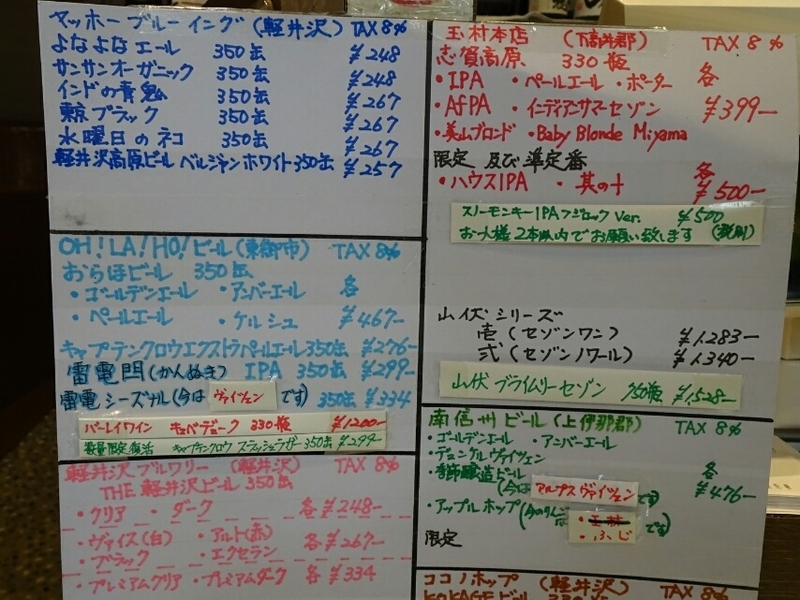 ヤッホーブルーイング(軽井沢) TAX 8%
よなよなエール 350缶 ¥248
サンサンオーガニック 350缶 ¥248
インドの青鬼 350缶 ¥267
東京ブラック 350缶 ¥267
水曜日のネコ 350缶 ¥267
軽井沢高原ビール ベルジャンホワイト 350缶 ¥257
OH! LA! HO! ビール(東御市) TAX 8%
おらほビール 350缶
・ゴールデンエール ・アンバーエール 各
・ペールエール ・ケルシュ ¥467-
キャプテンクロウエクストラペールエール 350缶 ¥276-
雷電閂(かんぬき) IPA 350缶 ¥299-
雷電シーズナル(今は ヴァイツェン です) 350缶 ¥334
バーレイワイン キュベデューク 330瓶 ¥1200-
数量限定復活 キャプテンクロウ スラッシュラガー 350缶 ¥299-
軽井沢ブルワリー (軽井沢) TAX 8%
THE 軽井沢ビール 350缶
・クリア ・ダーク 各¥248-
・ヴァイス(白) ・アルト(赤) 各¥267-
・ブラック ・エクセラン
・プレミアムクリア ・プレミアムダーク 各¥334
玉村本店 (下高井郡) TAX 8%
志賀高原 330瓶
・IPA ・ペールエール ・ポーター 各
・AfPA ・インディアンサマーセゾン ¥399-
・美山ブロンド ・Baby Blonde Miyama
限定 及び 準定番
・ハウスIPA ・其の十 各 ¥500-
スノーモンキーIPA フジロック Ver. ¥500
お一人様2本以内でお願い致します (税別)
山伏シリーズ
壱(セゾンワン) ¥1,283-
弐(セゾンノワール) ¥1,340-
山伏 プライムリーセゾン 750瓶 ¥1,528-
南信州ビール(上伊那郡) TAX 8%
・ゴールデンエール ・アンバーエール
・デュンケルヴァイツェン 各
・季節醸造ビール ¥476-
(今は アルプス ヴァイツェン です)
・アップルホップ(今のりんごは
・ふじ です)
限定
ココノホップ (軽井沢) TAX 8%
KOKAGEビール 330瓶